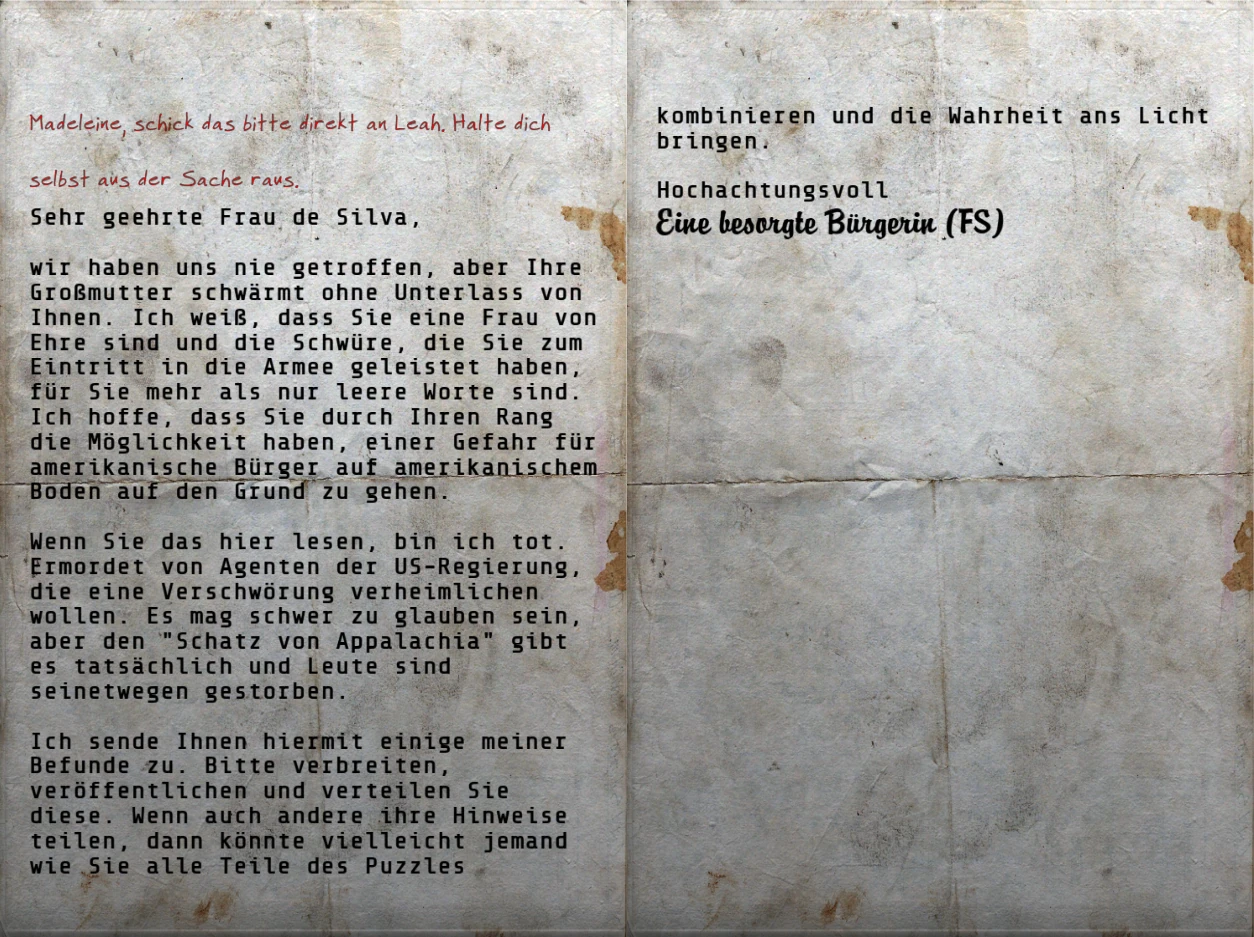 Madeleine, schick das bitte direkt an Leah. Halte dich
selbst aus der Sache raus.
Sehr geehrte Frau de Silva,
wir haben uns nie getroffen, aber Ihre
Großmutter schwärmt ohne Unterlass von
Ihnen. Ich weiß, dass Sie eine Frau von
Ehre sind und die Schwüre, die Sie zum
Eintritt in die Armee geleistet haben,
für Sie mehr als nur leere Worte sind.
Ich hoffe, dass Sie durch Ihren Rang
die Möglichkeit haben, einer Gefahr für
amerikanische Bürger auf amerikanischem
Boden auf den Grund zu gehen.
Wenn Sie das hier lesen, bin ich tot.
Ermordet von Agenten der US-Regierung,
die eine Verschwörung verheimlichen
wollen. Es mag schwer zu glauben sein,
aber den "Schatz von Appalachia" gibt
es tatsächlich und Leute sind
seinetwegen gestorben.
Ich sende Ihnen hiermit einige meiner
Befunde zu. Bitte verbreiten,
veröffentlichen und verteilen Sie
diese. Wenn auch andere ihre Hinweise
teilen, dann könnte vielleicht jemand
wie Sie alle Teile des Puzzles
kombinieren und die Wahrheit ans Licht
bringen.
Hochachtungsvoll
Eine besorgte Bürgerin (FS)